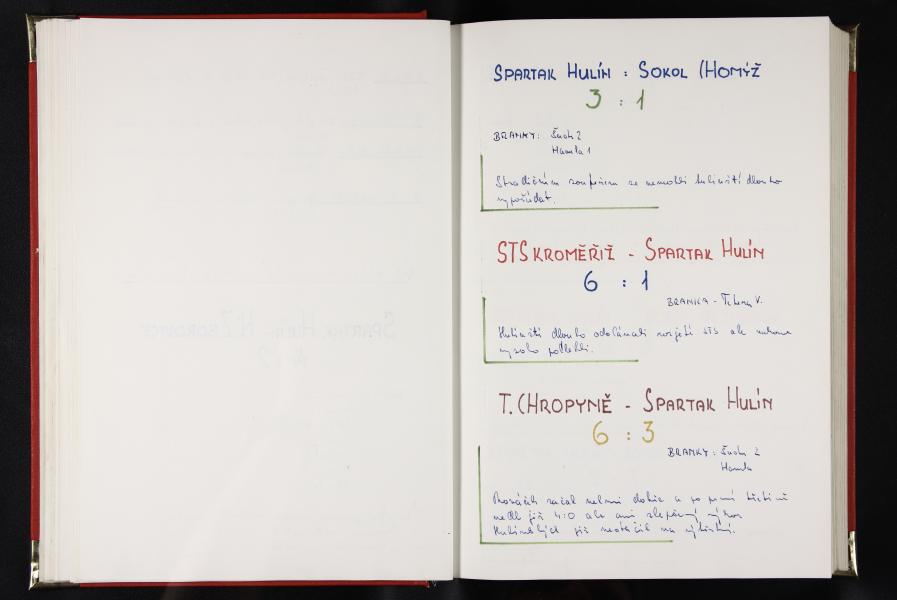 SPARTAK HULÍN : SOKOL CHOMÝŽ
3 : 1
BRANKY: Šuch 2
Hamla 1
soupeřem se nemohli hulínští dlouho
vypořádat.
STS KROMĚŘÍŽ - SPARTAK HULÍN
6 : 1
BRANKA - V.
Hulínští dlouho odolávali STS ale nakonec
vysoko podlehli.
T. CHROPYNĚ - SPARTAK HULÍN
6 : 3
BRANKY: Šuch 2
Hamla
začal velmi dobře a po první třetině
vedl již 4:0 ale ani zlepšený výkon
Hulínských již na vítězství.